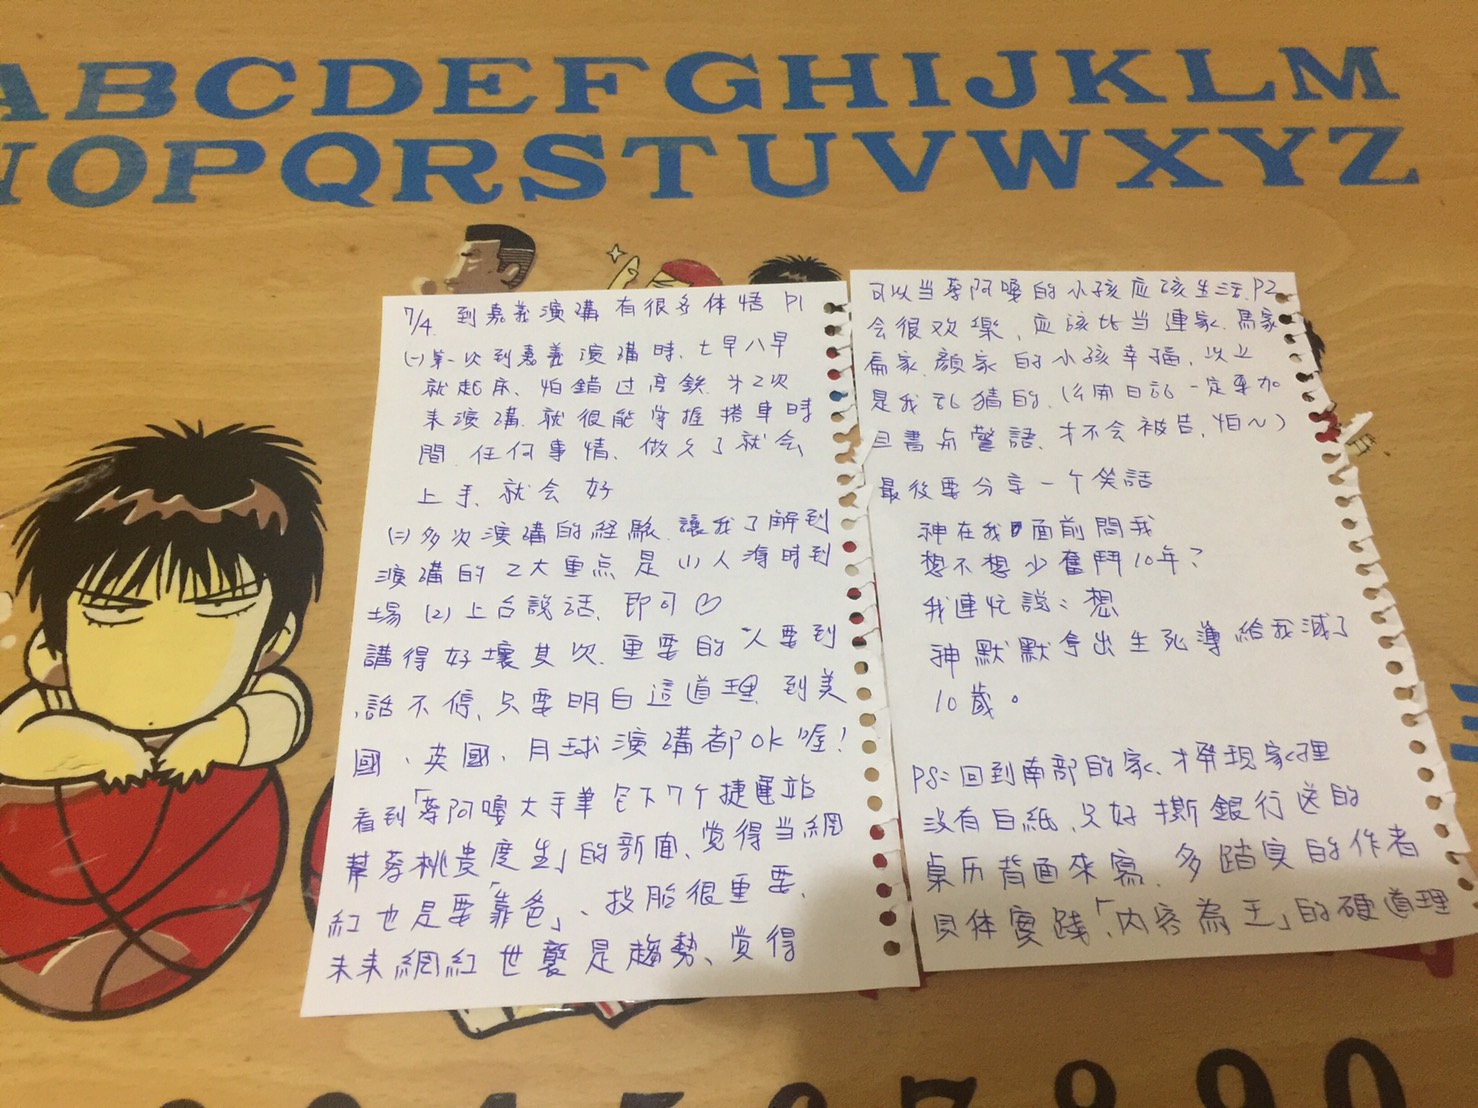 ABCDEFGHIJKLM
NOPQRSTUVWXYZ
7/4. 到嘉義演講有很多体悟 P1
(一)第一次到嘉義演講時、七早八早
就起床、怕錯过高鉄. 才2次
来演講.就很能掌握搭車時
間.任何事情、做久了就会
上手、就会好
(二)多次演講的経験.讓我了解到
演講的2大重点是(1)人準時到
場 (2)上台說話、即可♡
講得好壞其次.重要的人要到
.話不停、只要明白這道理.到美
國、英國、月球演講都OK喔!
看到「蔡阿嘎大手筆包下7个捷運站
幫蔡桃貴度生」的新聞、觉得当網
紅也是要「靠爸」、投胎很重要.
未来網紅世襲是趨勢、觉得
可以当蔡阿嘎的小孩应该生活.P2
会很欢樂、应该比当連家.馬家
扁家.顏家的小孩幸福、以上
是我乱猜的.(公開日記一定要加
且書点警語、才不会被告、怕~)
最後要分享一个笑話
神在我面前問我
想不想少奮鬥10年?
我連忙說:想
神默默拿出生死薄給我減了
10歲。
PS:回到南部的家、才發現家裡
沒有白紙、只好撕銀行送的
桌历背面來寫.多踏实的作者
具体实踐「內容為王」的硬道理